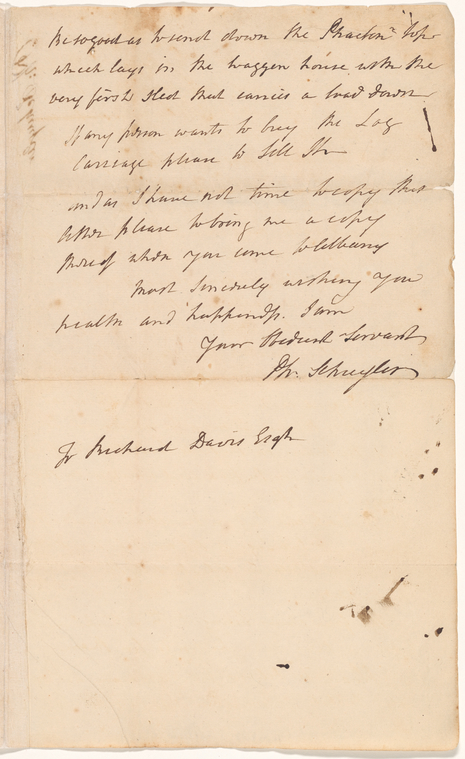 Be so good as to send down the Phaeton top
which lays in the waggon house with the
very first Sled that carries a load down
If any person wants to buy the Log
Carriage please to Sell It
and as I have not time to copy this
letter please to bring me a copy
thereof when you come to Albany
most Sincerely wishing you
health and happiness. I am
Your Obedient Servant
Ph. Schuyler
To Richard Davis Esqr